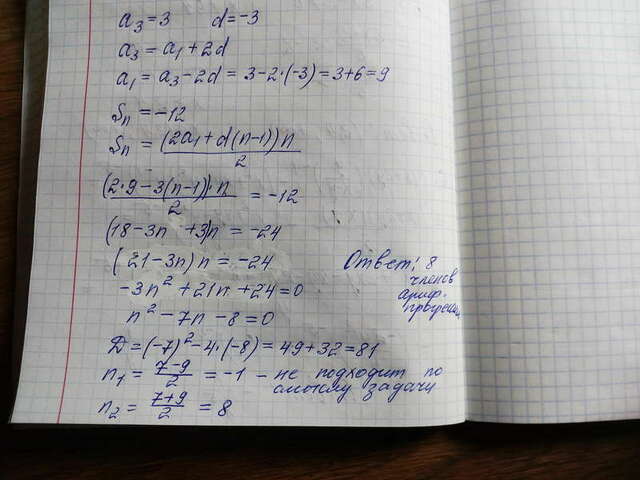 a₃=3 d=-3
a₃=a₁+2d
a₁=a₃-2d=3-2·(-3)=3+6=9
Sₙ=-12
Sₙ=(2a₁+d(n-1))n/2
(2·9-3(n-1))·n/2=-12
(18-3n+3)n=-24
(21-3n)n=-24
-3n²+21n+24=0
n²-7n-8=0
Д=(-7)²-4·(-8)=49+32=81
n₁=7-9/2=-1 - не подходит по
смыслу задачи
n₂=7+9/2=8
Ответ: 8
членов
ариф.
прогрессии